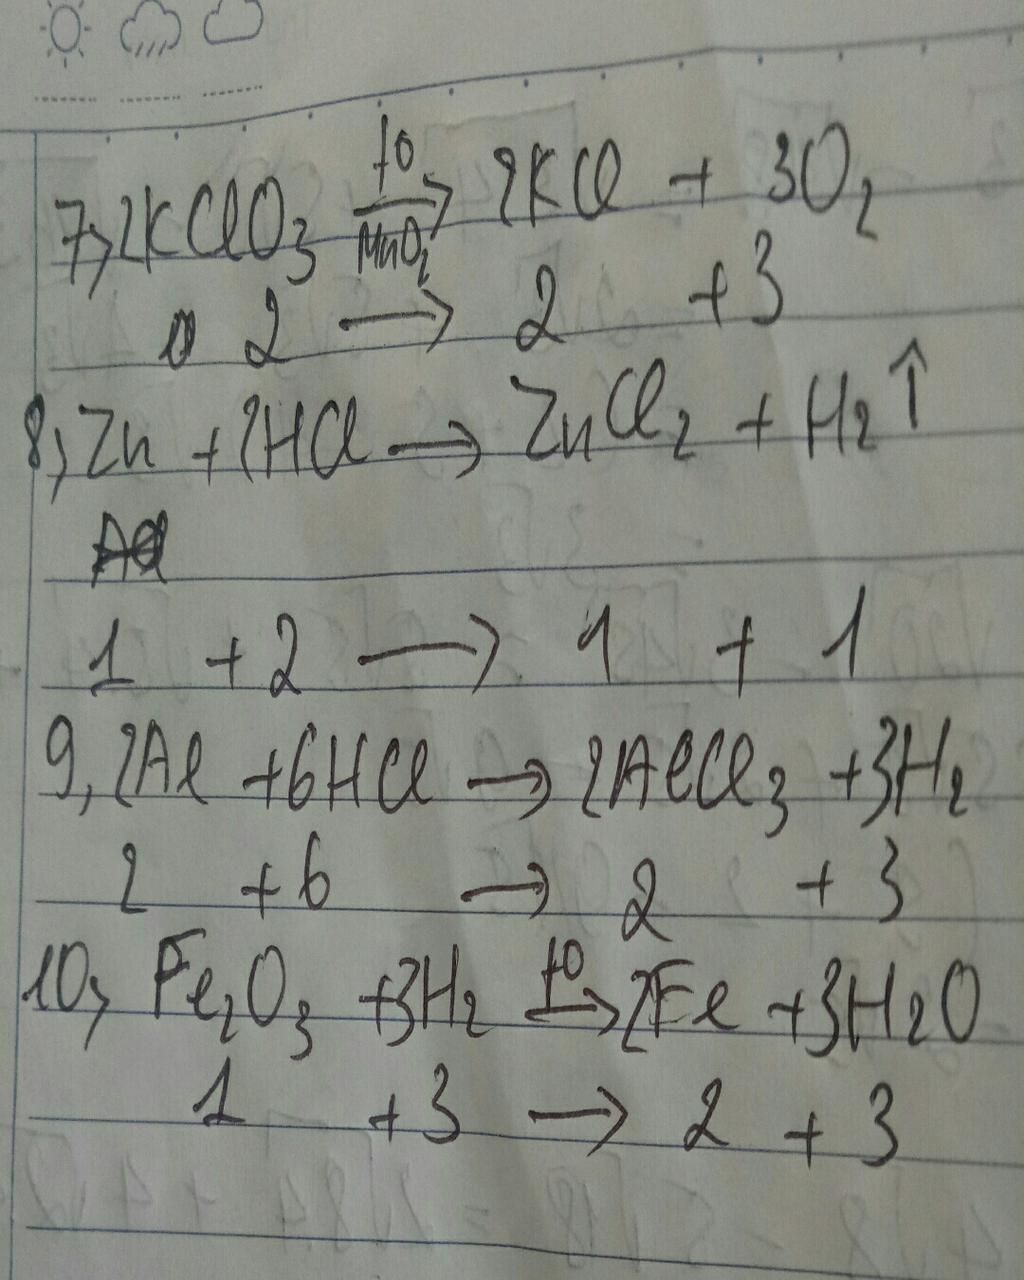 7, 2KClO3 t0→MnO2 2KCl + 3O2
2 → 2 + 3
8, Zn + 2HCl → ZnCl2 + H2↑
1 + 2 → 1 + 1
9, 2Al + 6HCl → 2AlCl3 + 3H2
2 + 6 → 2 + 3
10, Fe2O3 + 3H2 t0→ 2Fe + 3H2O
1 + 3 → 2 + 3